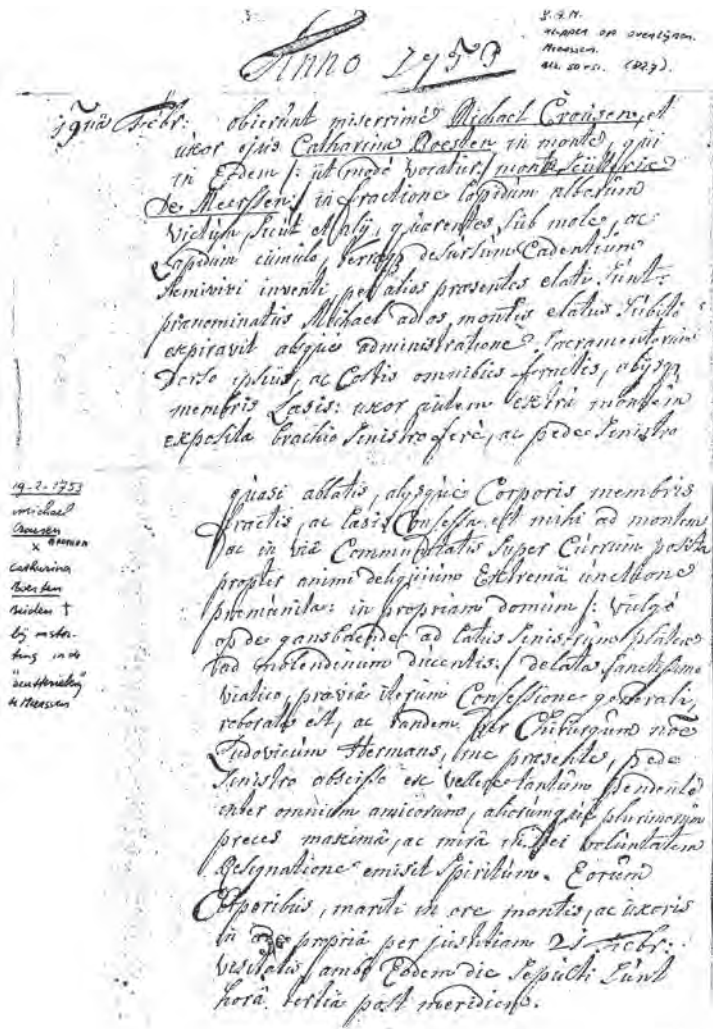 Anno 1753
S.A.M.
klapper op overlijden
Meerssen.
blz. 50 vs. (D27).
19nâ Febr: obierunt miserrimè Michael Crousen, et
uxor ejus Catharina Boesten in monte, qui
in Eodem /: ut modò vocatur / monte Scutterie
De Meerssen / in fractione lapidum alborum
victum, sicut et alij, quærentes sub mole, ac
Lapidum cumulo, desursum Cadentium
semivivi inventi per alios præsentes elati sunt:
prænominatus Michael ad os montis elatus subitò
expiravit absque administratione Sacramentorum
Dorso ipsius, ac Costis omnibus fractis, alijsq
membris Læsis: uxor autem extra montem
exposita brachio sinistro ferè, ac pede sinistro
quasi ablatis, alysque Corporis membris
fractis, ac læsis Confessa est mihi ad montem
ac in via Communitatis super Currum posita
propter animi deliquium Extremâ unctione
præmunita: in propriam domum /: vulgò
op de gansbaende ad latus sinistrum plateæ
ad molendinum ducentis: / delata sanctissimo
viatico, præviâ iterum Confessione generali,
roborata est, ac tandem per Chirurgum noē
Ludovicum Hermans, me præsente, pede
sinistro abscisso ex vellere tantum pendente
inter omnium amicorum, aliorumque plurimorum
preces maximâ, ac mirâ in Dei voluntatem
Resignatione emisit spiritum. Eorum
Corporibus, mariti in ore montis, ac uxoris
in propria per justitiam 21 Febr:
visitatis, ambo Eodem die sepulti sunt
horâ tertiâ post meridiem.
19-2-1753
Michael
Crousen
x
Catharina
Boesten
beiden †
bij instor-
ting in de
te Meerssen